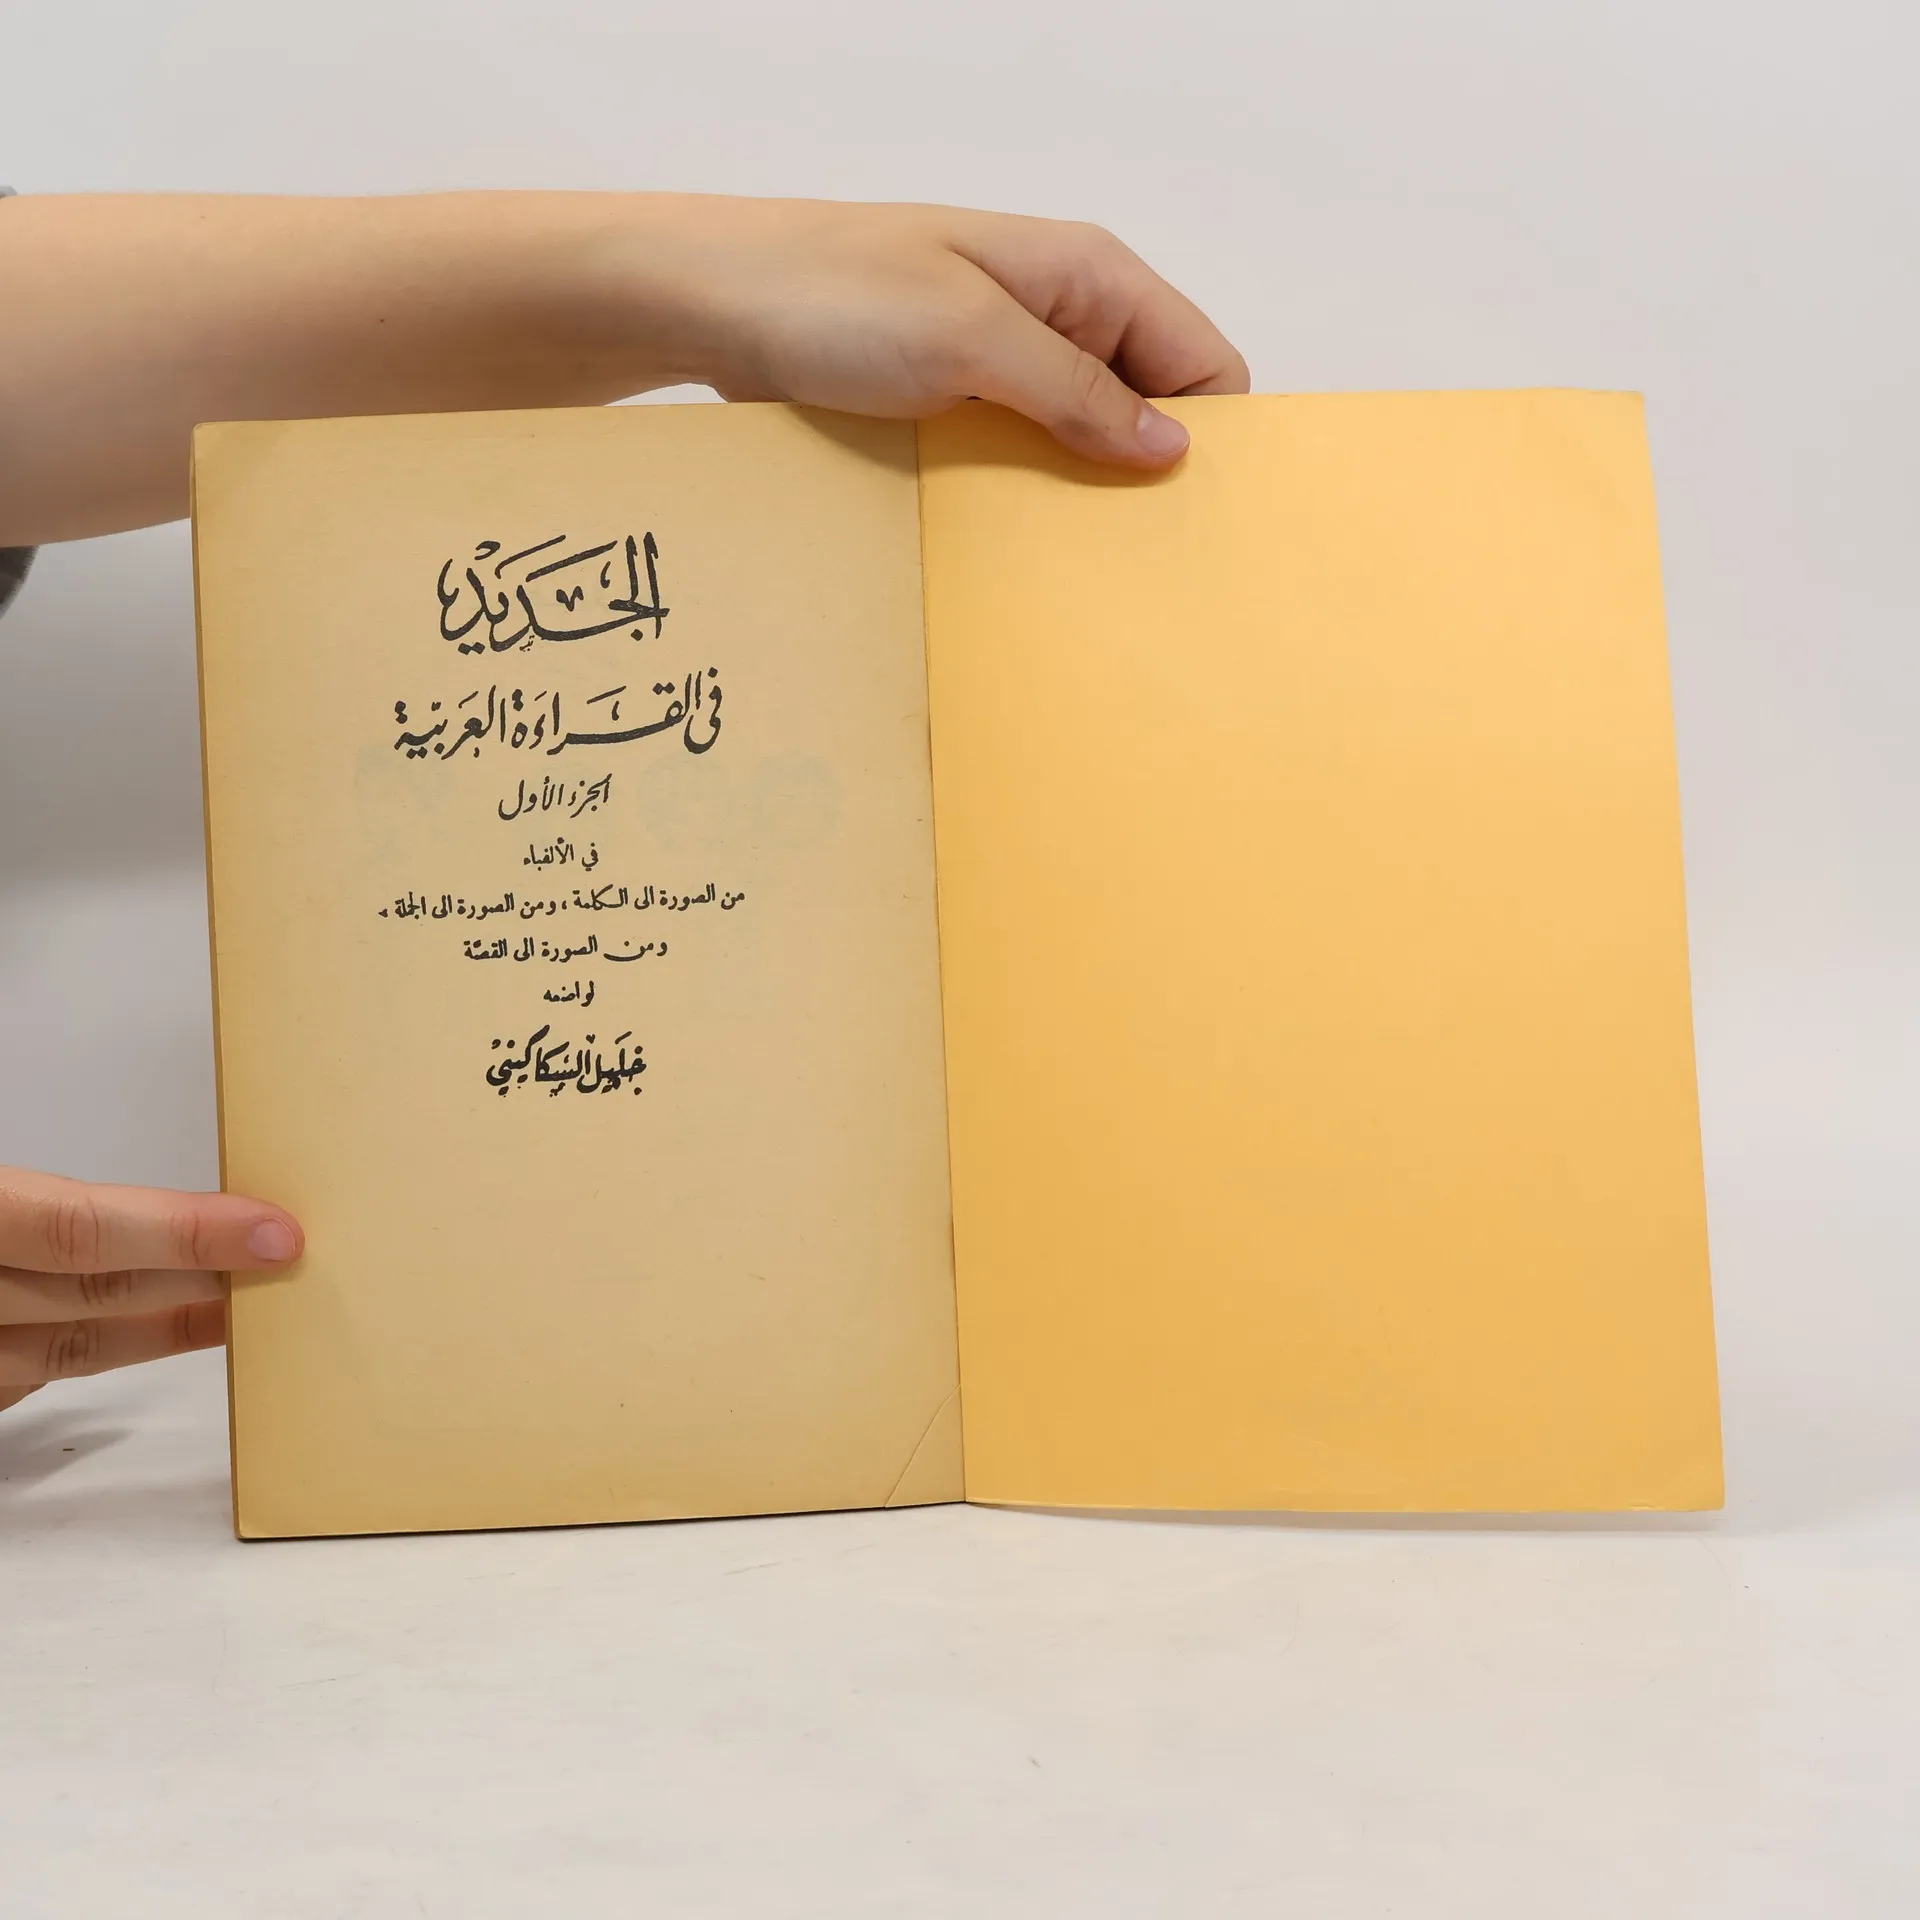 الجَديْد
في القِراءَة العَربيّة
الجزء الأول
في الألفباء
من الصورة الى الكلمة ، ومن الصورة الى الجملة ،
ومن الصورة الى القصّة
لواضعه
خَليل السَّكاكينيْ